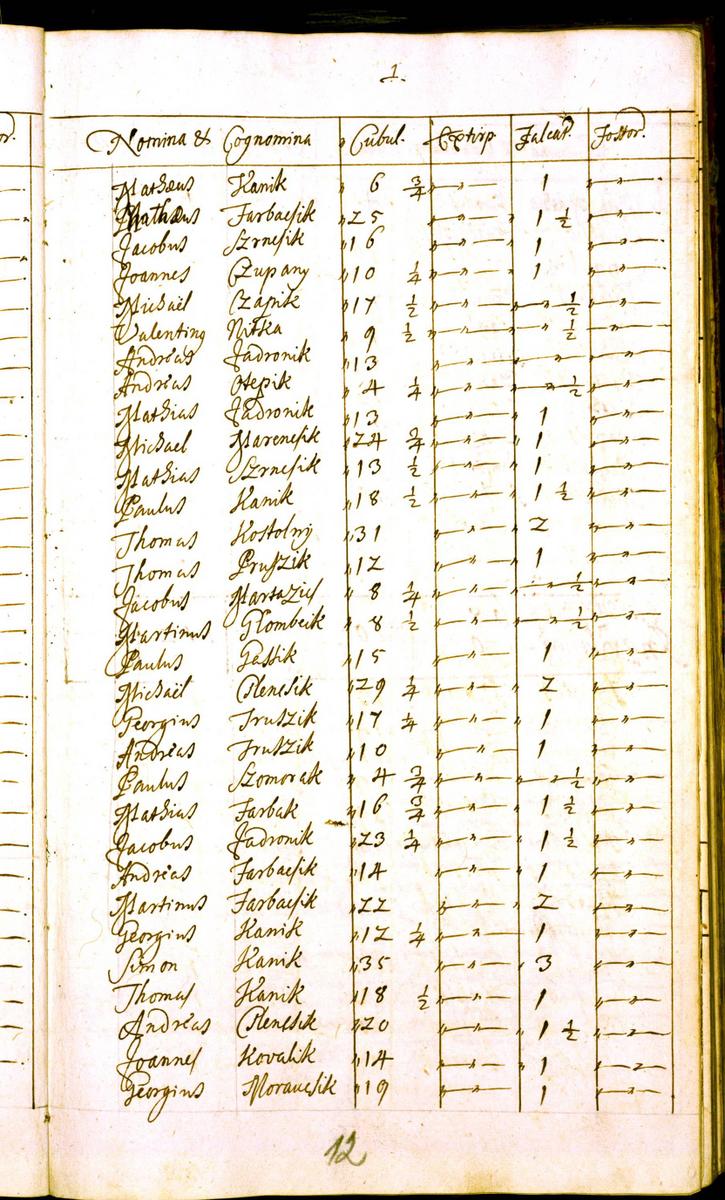 1.
Nomina & Cognomina " Cubul. Extirp Falcat. Fostor.
Mathæus Kanik " 6 3/4 " " — 1 " " —
Mathæus Farbacsik " 25 " " — 1 1/2 " " —
Jacobus Szrnesik " 16 " " — 1 " " —
Joannes Czupany " 10 1/4 " " — 1 " " —
Michaël Czapik " 17 1/2 " " — " " 1/2 " " —
Valenting Nitka " 9 1/2 " " — " " 1/2 " " —
Andreas Jadronik " 13 " " — " " — " " —
Andreas Otepik " 4 1/4 " " — " " 1/2 " " —
Mathias Jadronik " 13 " " — " 1 " " —
Michael Marenesik " 24 3/4 " " — " 1 " " —
Mathias Szrnesik " 13 1/2 " " — " 1 " " —
Paulus Kanik " 18 1/2 " " — " 1 1/2 " " —
Thomas Kostolny " 31 " " — " 2 " " —
Thomas Pruszik " 12 " " — " 1 " " —
Jacobus " 8 1/4 " " — " " 1/2 " " —
Martinus Glombcik " 8 1/2 " " — " " 1/2 " " —
Paulus Gassik " 15 " " — " 1 " " —
Michaël Olenesik " 29 1/4 " " — " 2 " " —
Georgius Truszik " 17 1/4 " " — " 1 " " —
Andreas Truszik " 10 " " — 1 " " —
Paulus Szmorak " 4 3/4 " " — " " 1/2 " " —
Mathias Farbak " 16 3/4 " " — " 1 1/2 " " —
Jacobus Jadronik " 23 1/4 " " — " 1 1/2 " " —
Andreas Farbacsik " 14 " " — " 1 " " —
Martinus Farbacsik " 22 " " — " 2 " " —
Georgius Kanik " 12 1/4 " " — " 1 " " —
Simon Kanik " 35 " " — " 3 " " —
Thomas Kanik " 18 1/2 " " — " 1 " " —
Andreas Olenesik " 20 " " — " 1 1/2 " " —
Joannes Kovalik " 14 " " — " 1 " " —
Georgius Moravcsik " 19 " " — 1 " " —
12